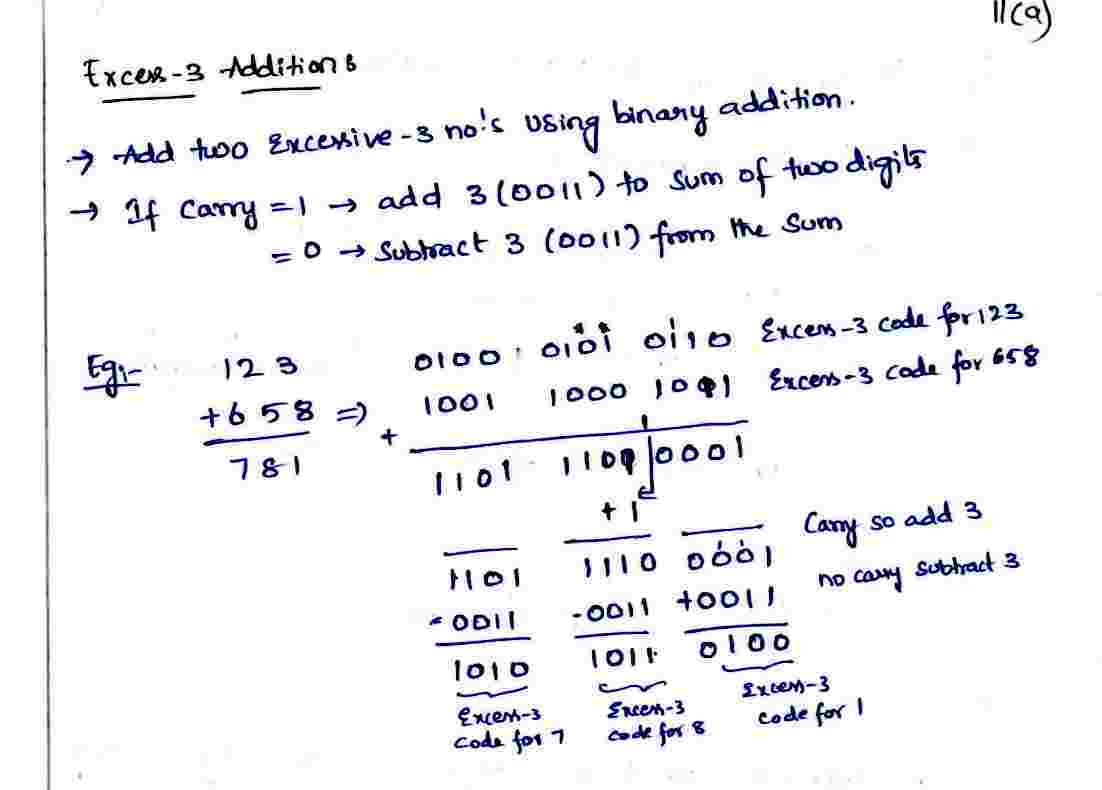 11(a)
Excess-3 Additions
→ Add two Excessive-3 no's using binary addition.
→ If Carry = 1 → add 3 (0011) to sum of two digits
= 0 → Subtract 3 (0011) from the sum
Eg:- 123 0100 0101 0110 Excess-3 code for 123
+658 ⇒ + 1001 1000 1011 Excess-3 code for 658
781 1101 1101 0001
+1
1101 1110 0001 Carry so add 3
-0011 -0011 +0011 no carry subtract 3
1010 1011 0100
Excess-3 code for 7 Excess-3 code for 8 Excess-3 code for 1